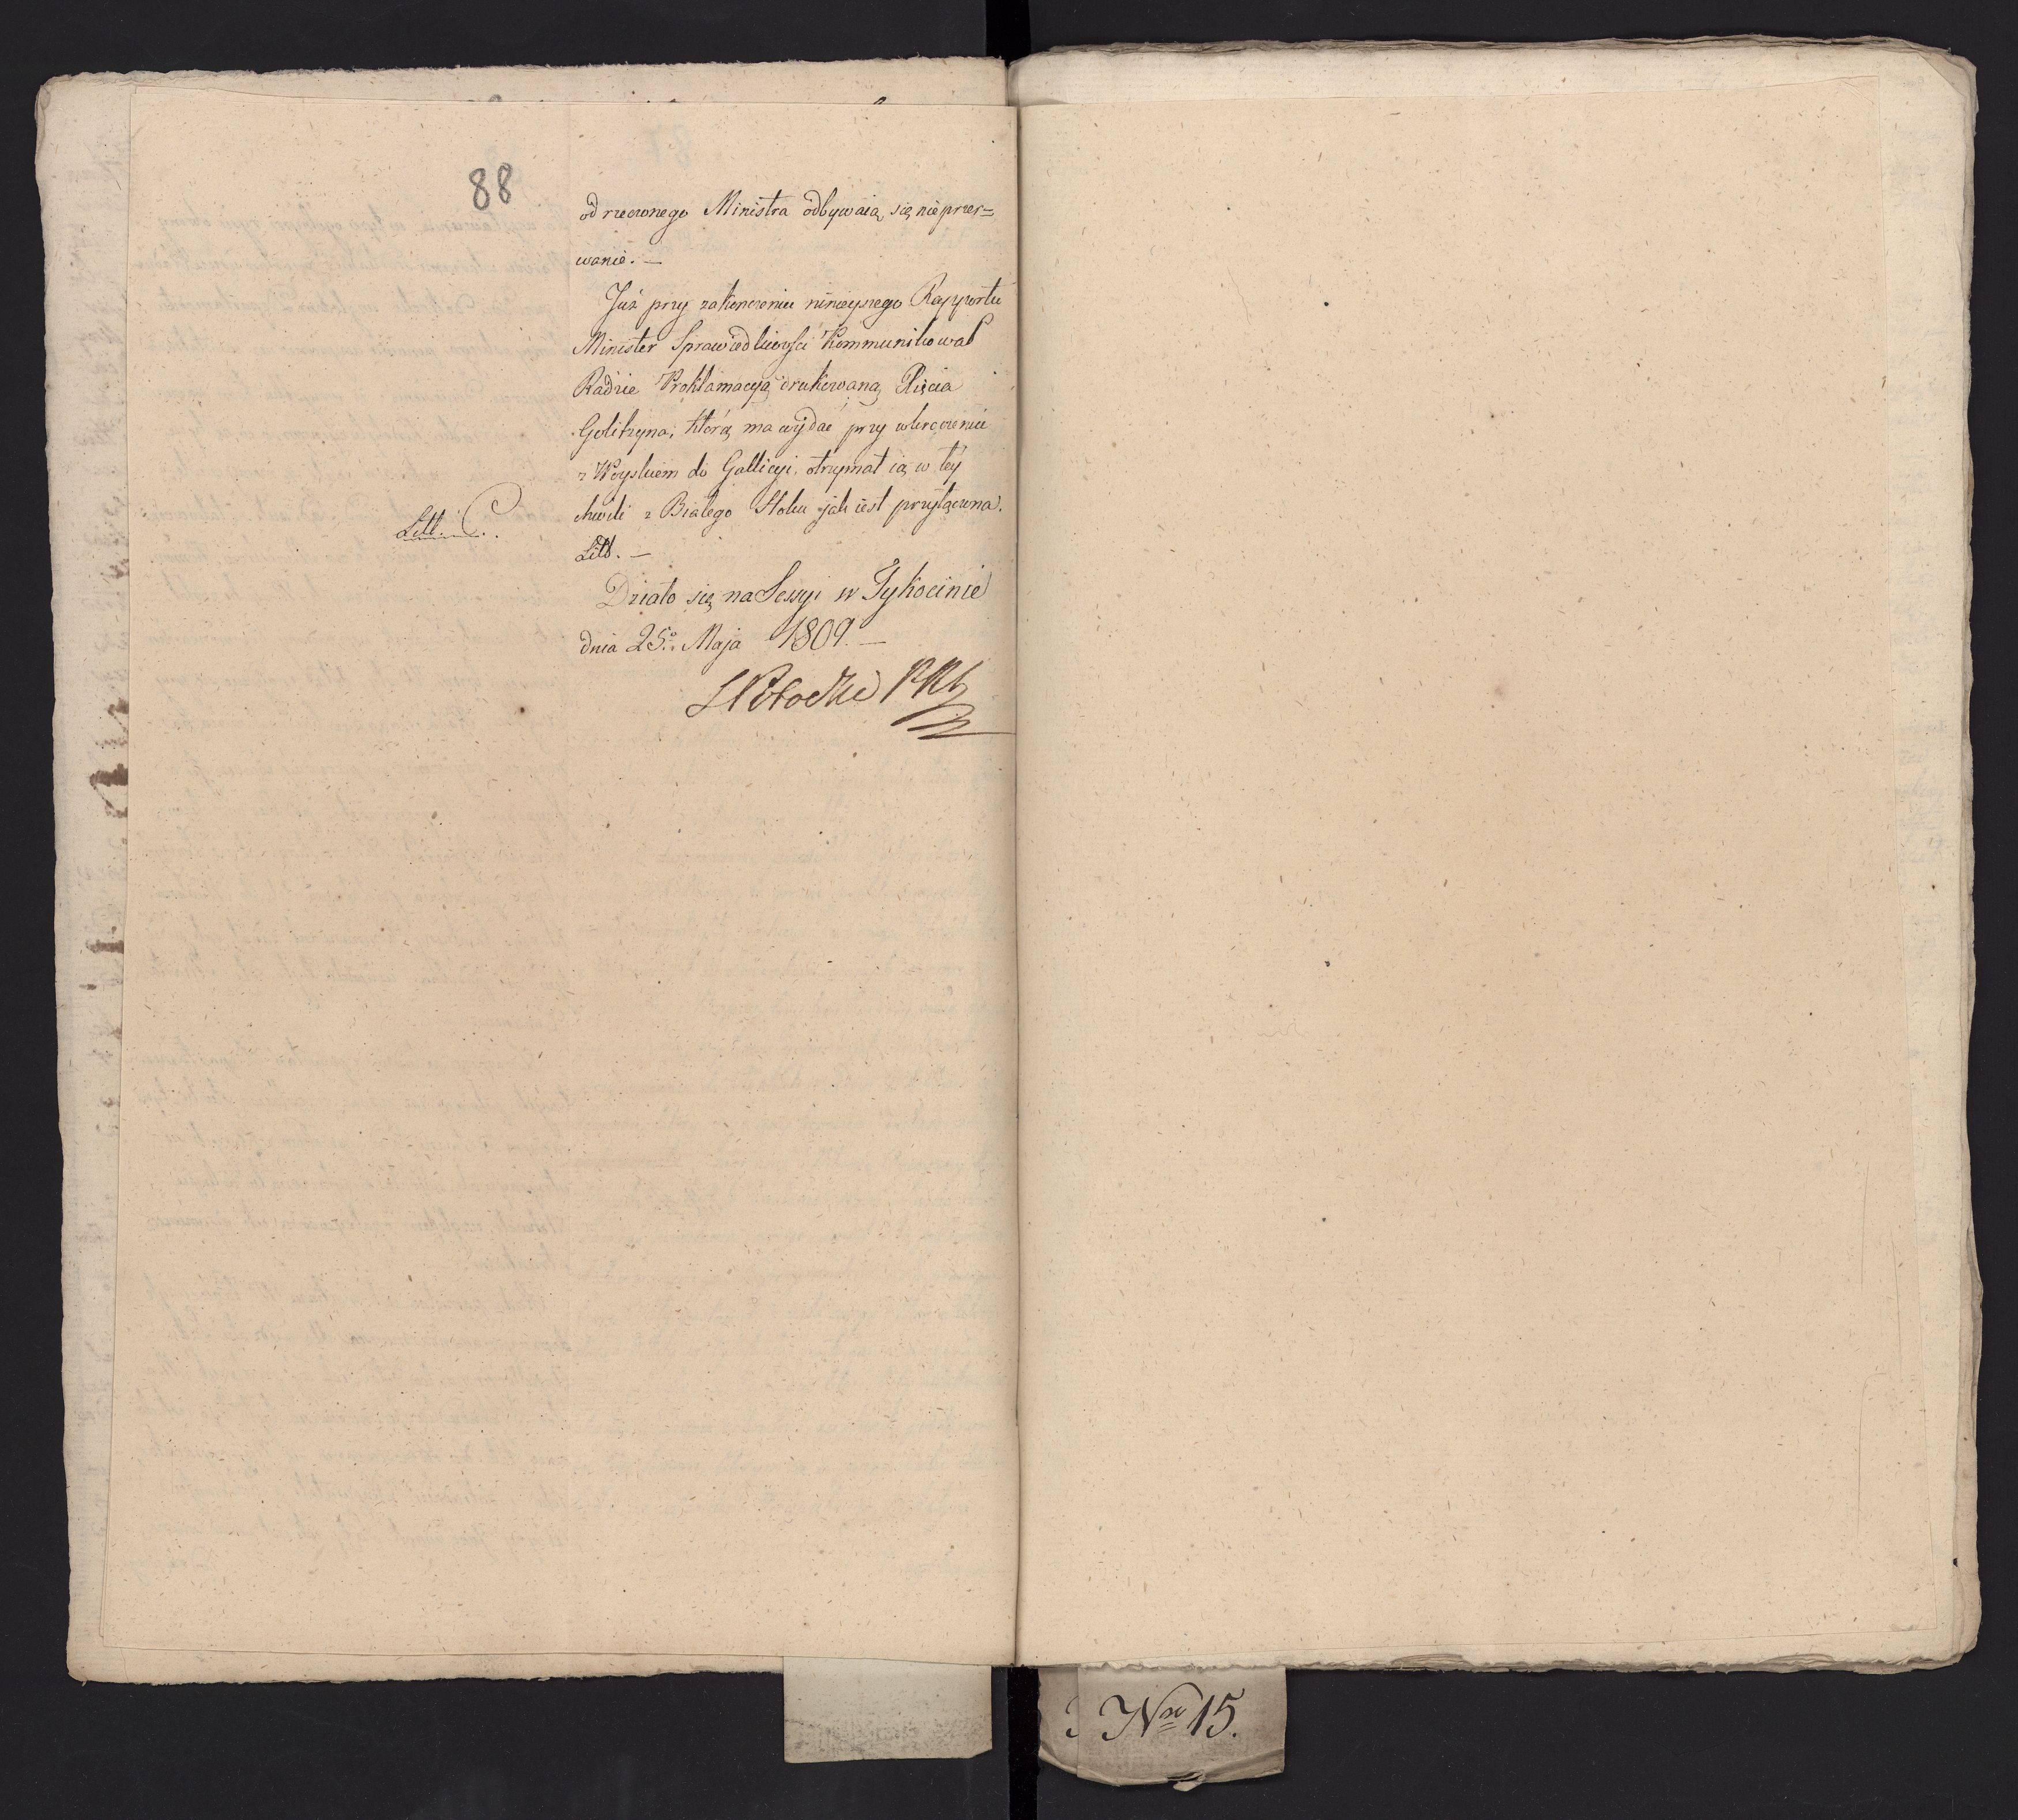 88
od rzeczonego Ministra odbywaią się nieprzer=
wanie. —
Już przy zakonczeniu ninieyszego Rapportu
Minister Sprawiedliwości Kommunikował
Radzie Proklamacyą drukowaną Xięcia
Golitzyna, którą ma wydać przy wkroczeniu
z Woyskiem do Gallicyi, otrzymał ią w tey
chwili z Białego Stoku jak iest przyłączona.
Litt. C.
Litt. —
Działo się na Sessyi w Tykocinie
dnia 25.o Maja 1809. —
SPotocki PRS
Nro 15.